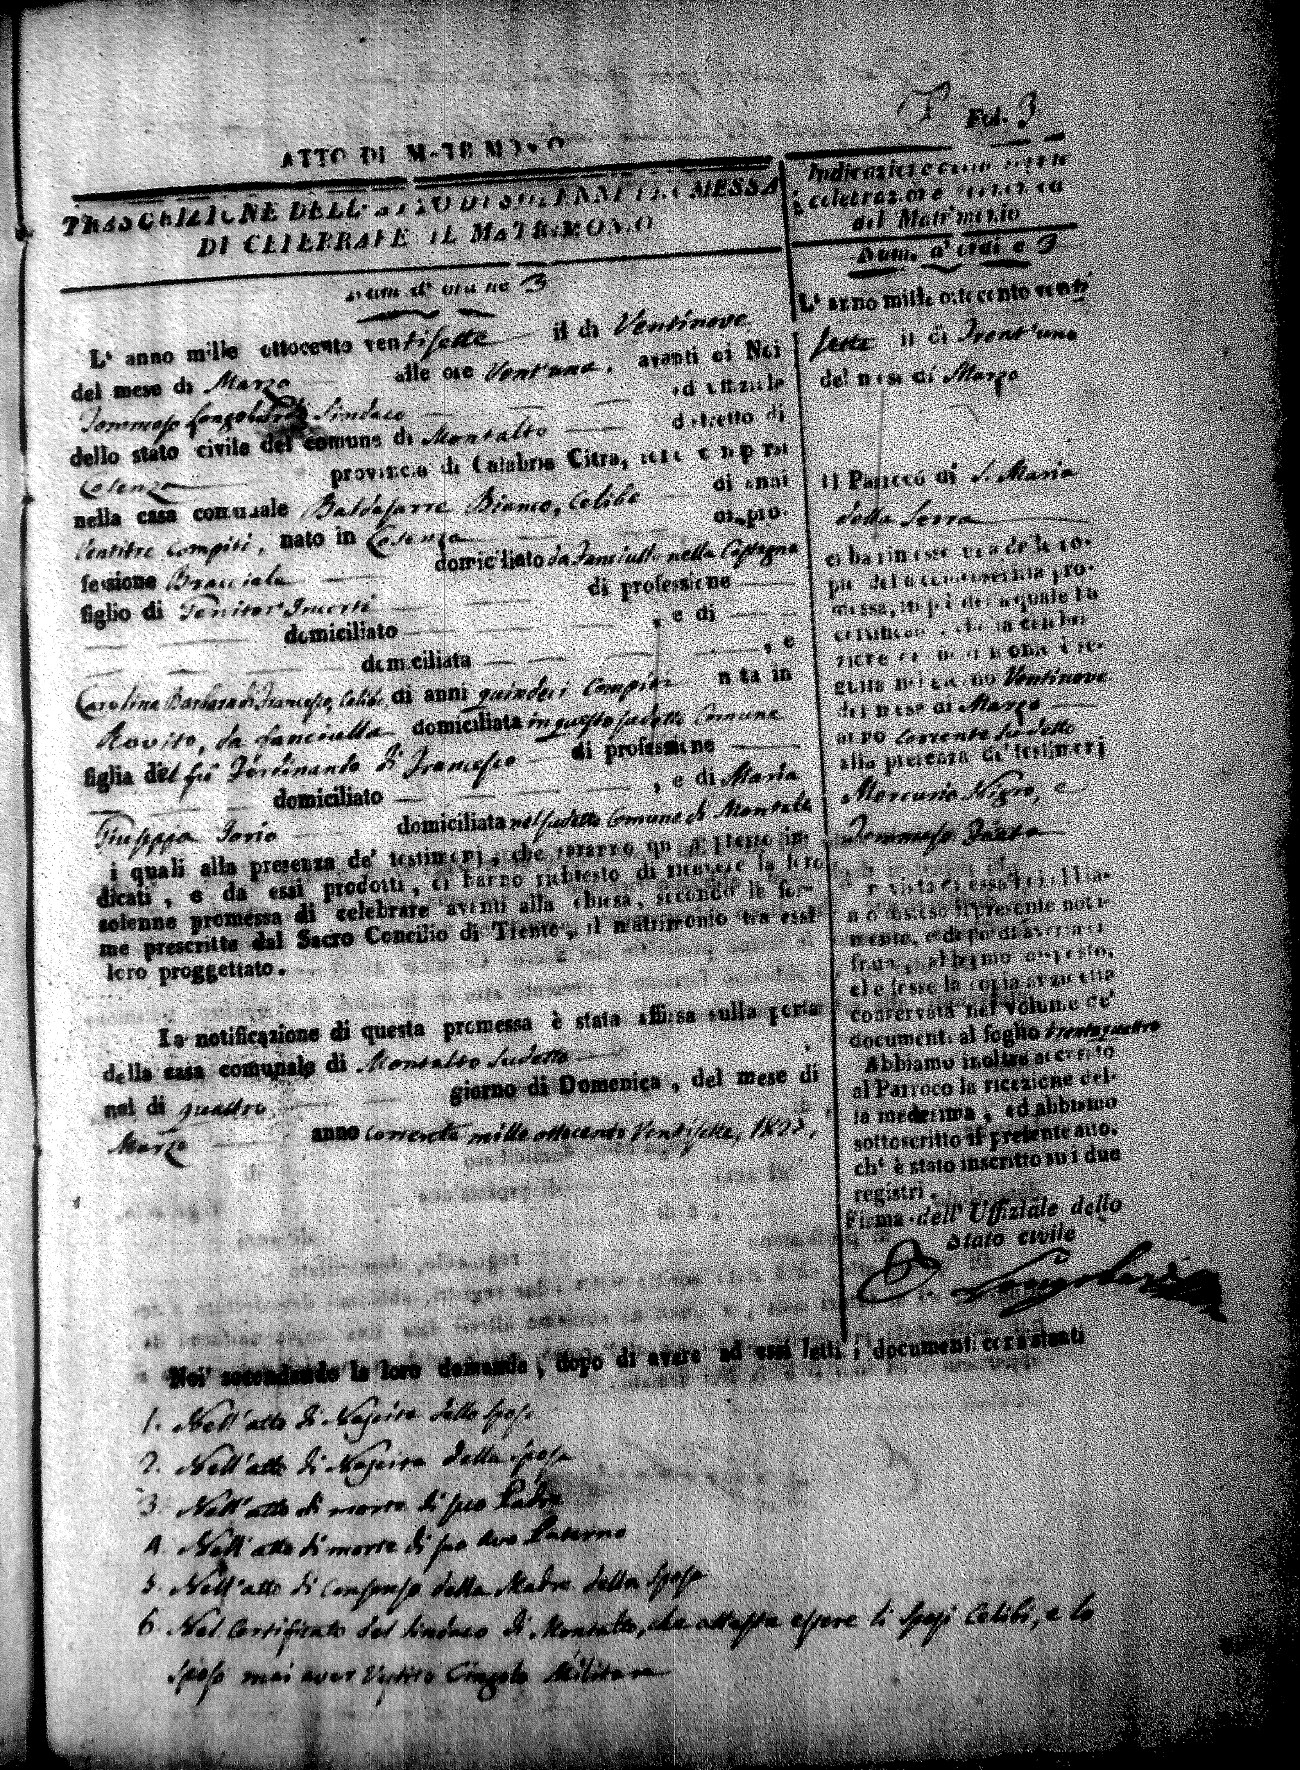 Fol. 3
ATTO DI
TRASCRIZIONE DELL' ATTO DI SOLENNE PROMESSA
DI CELEBRARE IL MATRIMONIO
Num. d' ordine 3
L' anno mille ottocento ventisette il di Ventinove
del mese di Marzo alle ore Vent'una, avanti di Noi
Tommaso Sindaco ed uffiziale
dello stato civile del comune di Montalto distretto di
Cosenza provincia di Calabria Citra, sono comparsi
nella casa comunale Baldasarre Bianco, Celibe di anni
Ventitre compiti, nato in Cosenza di pro-
fessione Bracciale domiciliato da fanciullo nella
figlio di Genitori Incerti di professione
domiciliato , e di
domiciliata , e
Carolina Barbara di Francesco, Celibe di anni quindeci Compiti nata in
Rovito, da fanciulla domiciliata in questo sudetto Comune
figlia del fu Ferdinando di Francesco di professione
domiciliato , e di Maria
Giuseppa Iorio domiciliata nel sudetto Comune di Montalto
i quali alla presenza de' testimonj, che saranno quì appresso in-
dicati, e da essi prodotti, ci hanno richiesto di ricevere la loro
solenne promessa di celebrare avanti alla chiesa, secondo le for-
me prescritte dal Sacro Concilio di Trento, il matrimonio tra essi
loro proggettato.
La notificazione di questa promessa è stata affissa sulla porta
della casa comunale di Montalto Sudetto
nel di quattro giorno di Domenica, del mese di
Marzo anno corrente mille ottocento Ventisette, 1827,
Indicazione della seguita
celebrazione canonica
del Matrimonio
Num. d' ordine 3
L' anno mille ottocento venti
sette il di Trent'uno
del mese di Marzo
Il Parroco di S. Maria
della Serra
ci ha rimesse una delle co-
pie della controscritta pro-
messa, in piè della quale ha
certificato, che la celebra-
zione del matrimonio è se-
guita nel giorno Ventinove
del mese di Marzo
anno corrente sudetto
alla presenza de' testimonj
Mercurio Nigro, e
Tommaso
In vista di essa noi abbia-
mo disteso il presente noti-
mento, e dopo di averla ci-
frata, abbiamo disposto,
che fosse la copia anzidetta
conservata nel volume de'
documenti al foglio trentaquattro
Abbiamo inoltre accusato
al Parroco la ricezione del-
la medesima, ed abbiamo
sottoscritto il presente atto,
ch' è stato inscritto su i due
registri.
Firma dell' Uffiziale dello
Stato civile
Noi secondando la loro domanda, dopo di avere ad essi letti i documenti consistenti
1. Nell'atto di Nascita dello Sposo
2. Nell'atto di Nascita della Sposa
3. Nell'atto di morte di suo Padre
4. Nell'atto di morte di suo Avo Paterno
5. Nell'atto di Consenso della Madre della Sposa
6. Nel Certificato del Sindaco di Montalto, che attesta essere li Sposi Celibi, e lo
Sposo mai aver Vestito Cingolo Militare